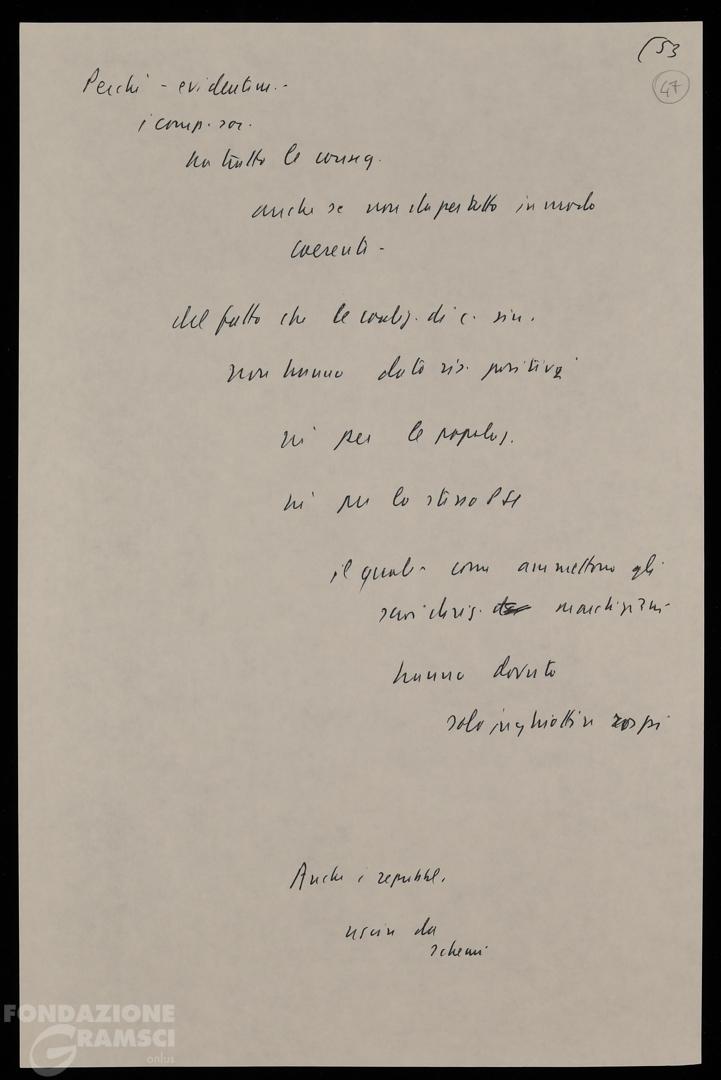 (53
47
Perché - evidentem.-
i comp. soc.
ha tratto le conseg.
anche se non dapertutto in modo
coerente -
del fatto che le coaliz. di c. sin.
non hanno dato ris. positivi
né per le popolaz.
né per lo stesso PSI
il quale - come ammettono gli
suoi dirig. marchigiani -
hanno dovuto
solo inghiottire rospi
Anche i repubbl.
uscire da
schemi
FONDAZIONE
GRAMSCI
onlus